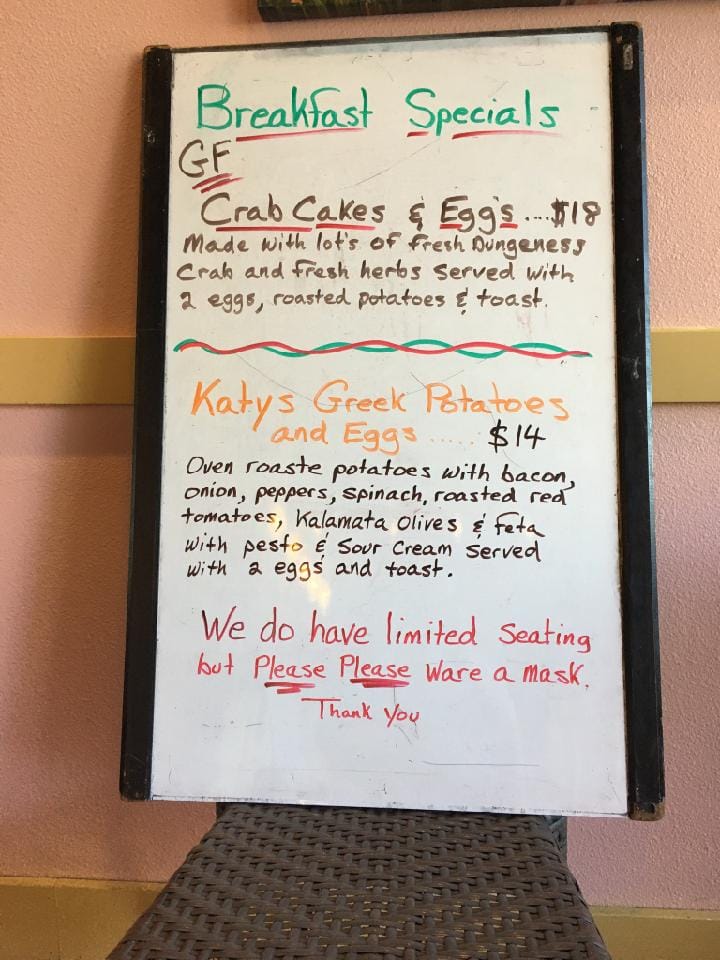 Breakfast Specials
GF
Crab Cakes & Egg's ....$18
Made with lot's of fresh Dungeness
Crab and fresh herbs served with
2 eggs, roasted potatoes & toast.
Katys Greek Potatoes
and Eggs ..... $14
Oven roaste potatoes with bacon,
onion, peppers, spinach, roasted red
tomatoes, Kalamata Olives & feta
with pesto & Sour Cream served
with 2 eggs and toast.
We do have limited seating
but Please Please ware a mask.
Thank You